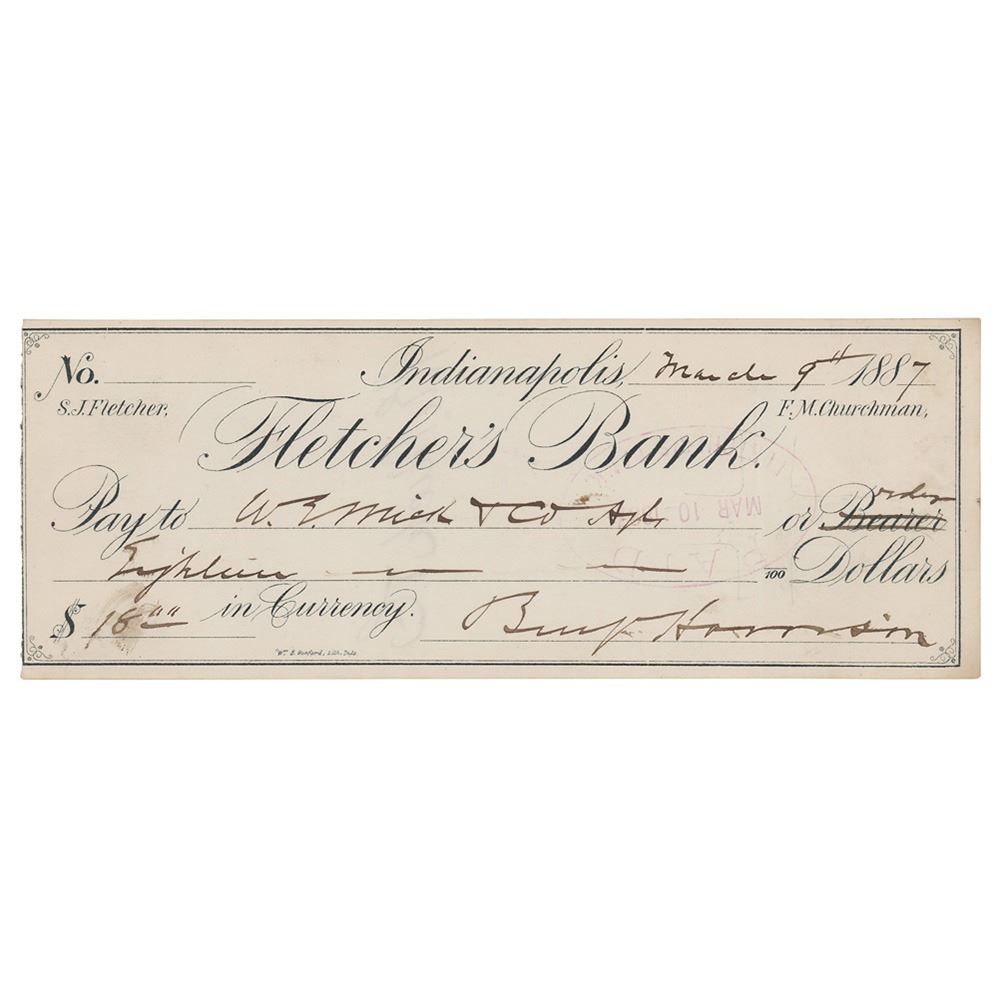 No. Indianapolis, March 9th 1887
S. J. Fletcher, F. M. Churchman,
Fletcher's Bank.
order
Pay to W. E. Mick & Co Agts or Bearer
Eighteen — — /100 Dollars
$ 18 00 in Currency. Benj. Harrison
Wm. B. Burford, Lith. Indp.
MAR 10
PAID